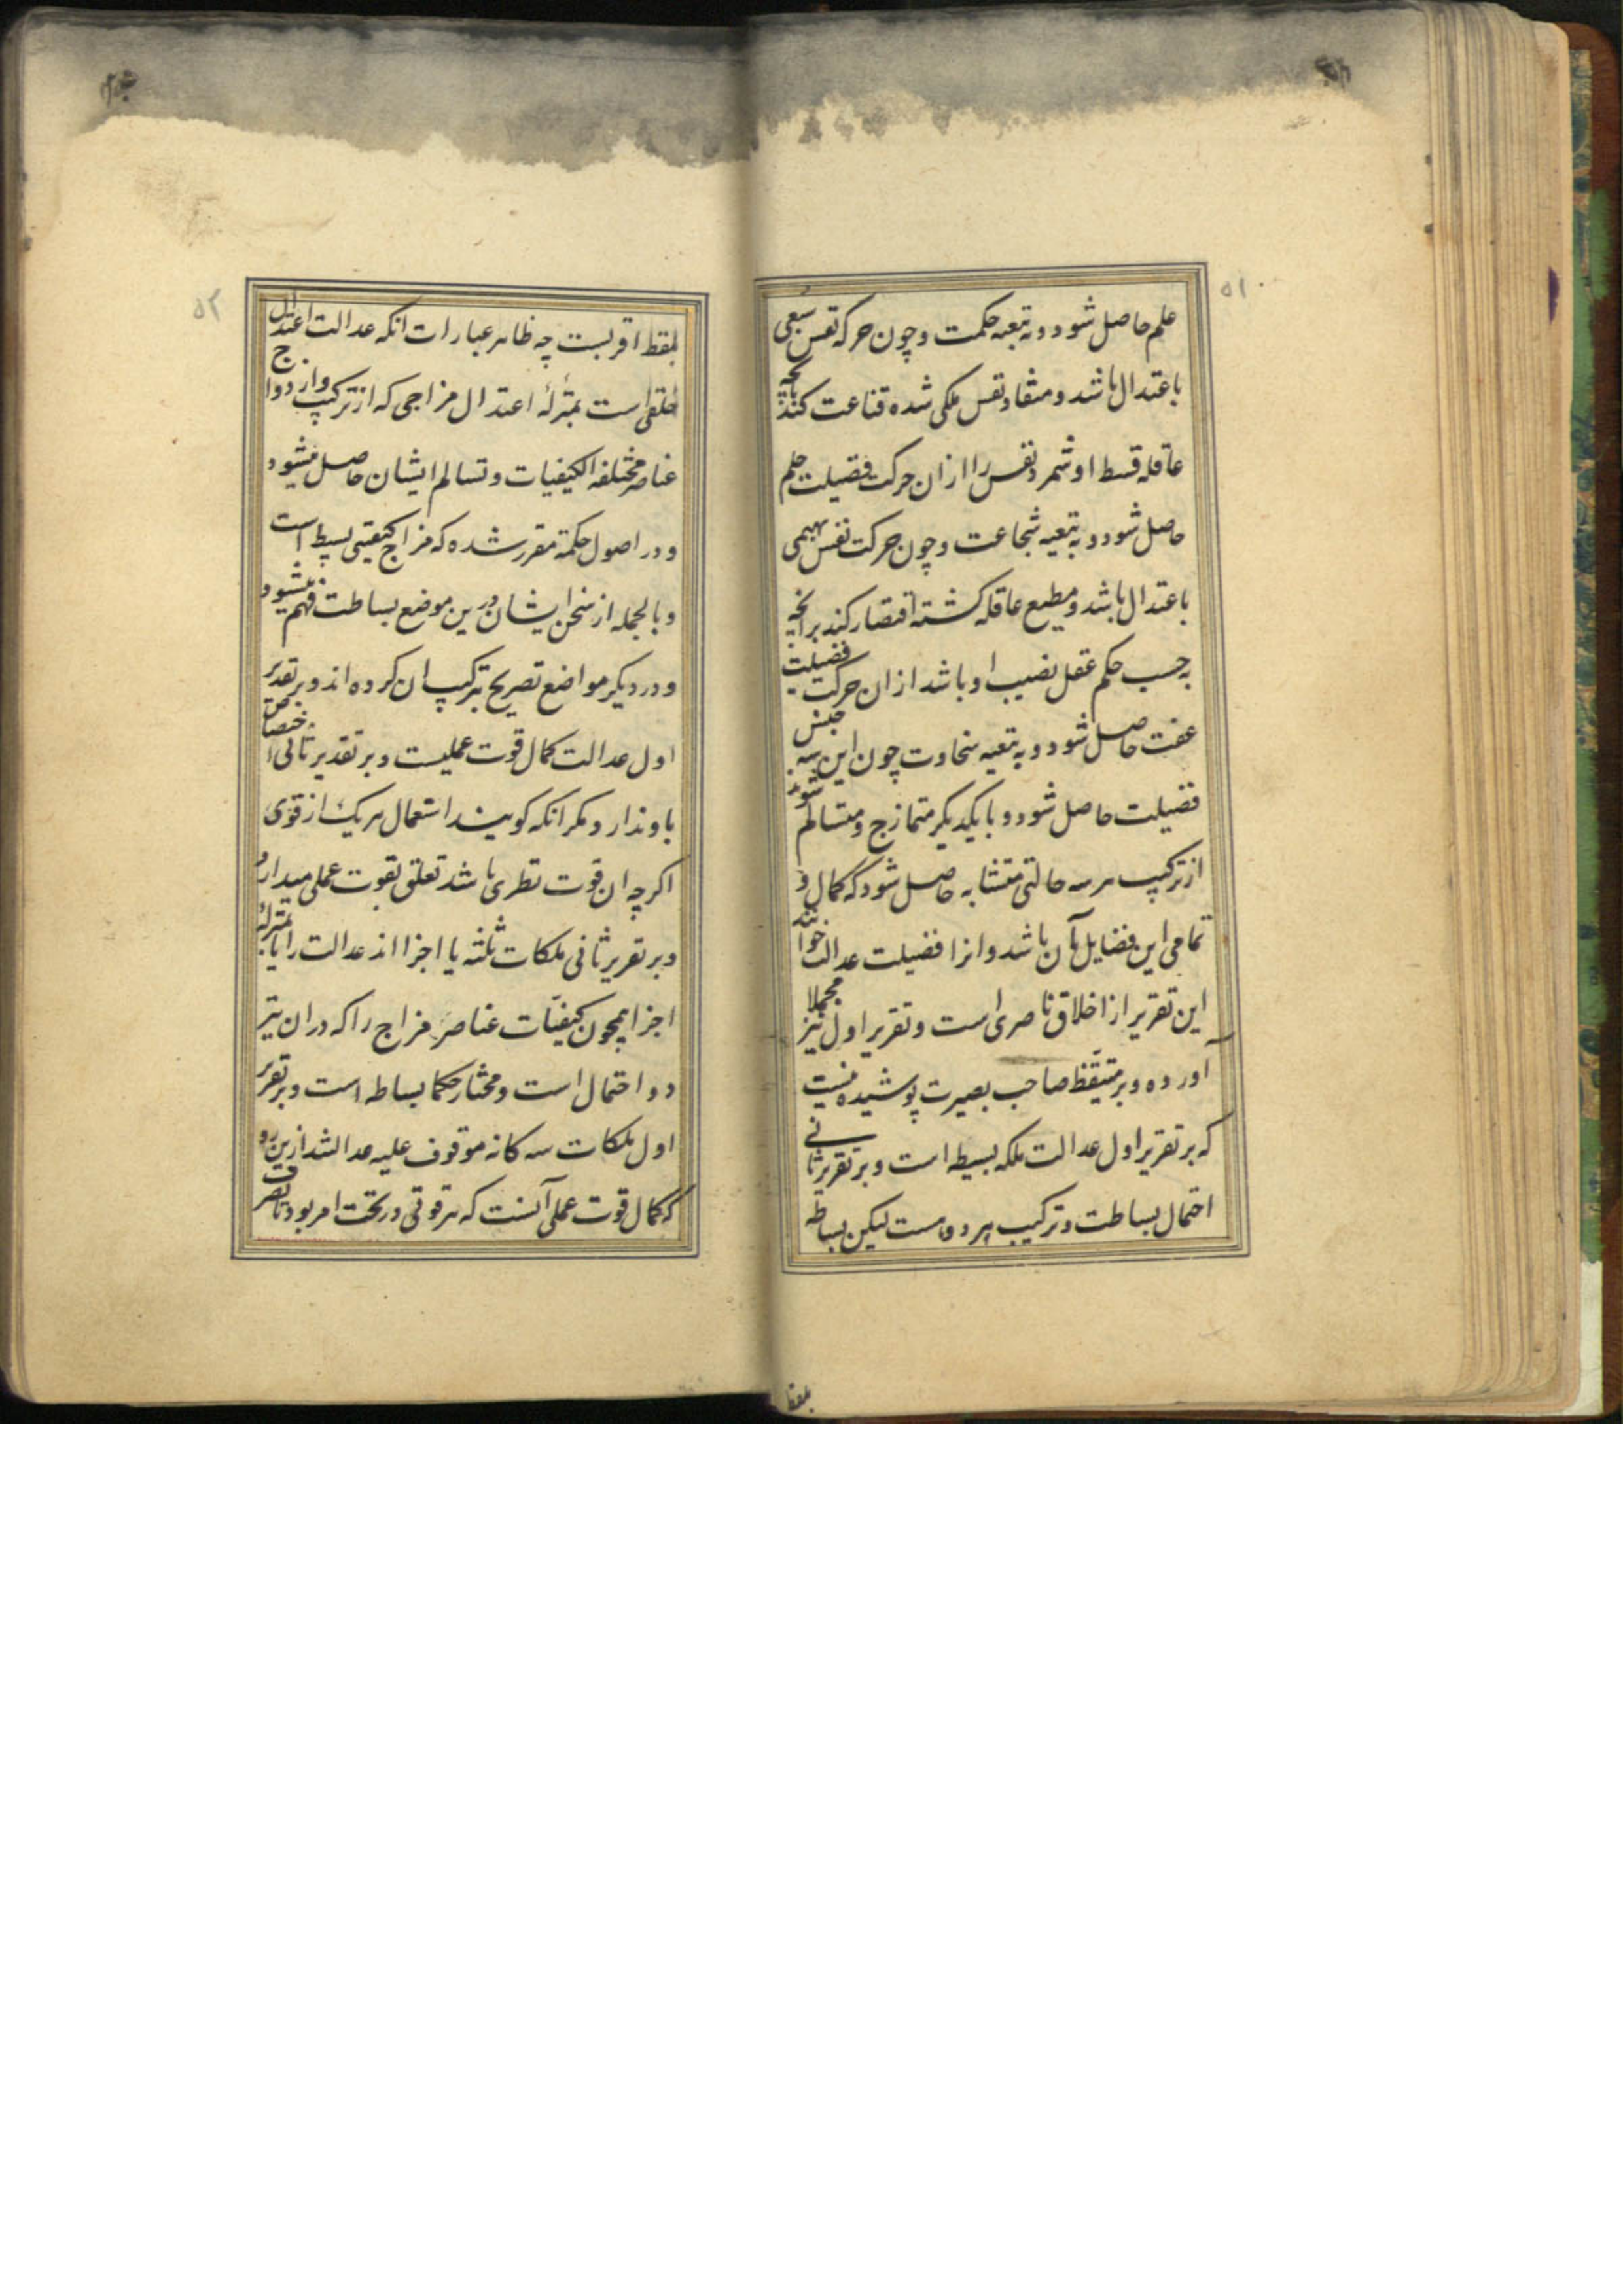 ۵۱
علم حاصل شود و به تبعیه حکمت و چون حرکه نفس سبعی
باعتدال باشد و منقاد نفس ملکی شده قناعت کند بآنچه
عاقله قسط او شمرد نفس را از ان حرکت فضیلت حلم
حاصل شود و به تبعیه شجاعت و چون حرکت نفس بهیمی
باعتدال باشد و مطیع عاقله کشته اقتصار کند بر آنچه
به حسب حکم عقل نصیب او باشد از ان حرکت فضیلت
عفت حاصل شود و به تبعیه سخاوت چون این سه جنس
فضیلت حاصل شود و با یکدیکر متمازج و متسالم شوند
از ترکیب هر سه حالتی متشابه حاصل شود که کمال و
تمامی این فضایل بآن باشد و انرا فضیلت عدالت خوانند
این تقریر از اخلاق ناصری است و تقریر اول نیز مجملا
آورده و بر متیقظ صاحب بصیرت پوشیده نیست
که بر تقریر اول عدالت ملکه بسیطه است و بر تقریر ثانی
احتمال بساطت و ترکیب هر دو هست لیکن بساطه
بلفظ
۵۲
بلفظ اقربست چه ظاهر عبارات انکه عدالت اعتدال
خلقی است بمنزلهٔ اعتدال مزاجی که از ترکیب و ازدواج
عناصر مختلفه الکیفیات و تسالم ایشان حاصل میشود
و در اصول حکمة مقرر شده که مزاج کیفیتی بسیط است
و بالجمله از سخن ایشان درین موضع بساطت فهم میشود
و در دیکر مواضع تصریح بترکیب ان کرده اند و بر تقدیر
اول عدالت کمال قوت عملیست و بر تقدیر ثانی اختصاص
باو ندارد مکر انکه کویند استعمال هر یک از قوی
اکرچه ان قوت نظری باشد تعلق بقوت عملی میدارد
و بر تقریر ثانی ملکات ثلثه یا اجزا اند عدالت را یا بمنزلهٔ
اجزا همچون کیفیّات عناصر مزاج را که در ان نیز
دو احتمال است و مختار حکما بساطه است و بر تقریر
اول ملکات سه کانه موقوف علیه عدالتند ازین رو
که کمال قوت عملی آنست که هر قوتی در تحت امر بود تا تصرف